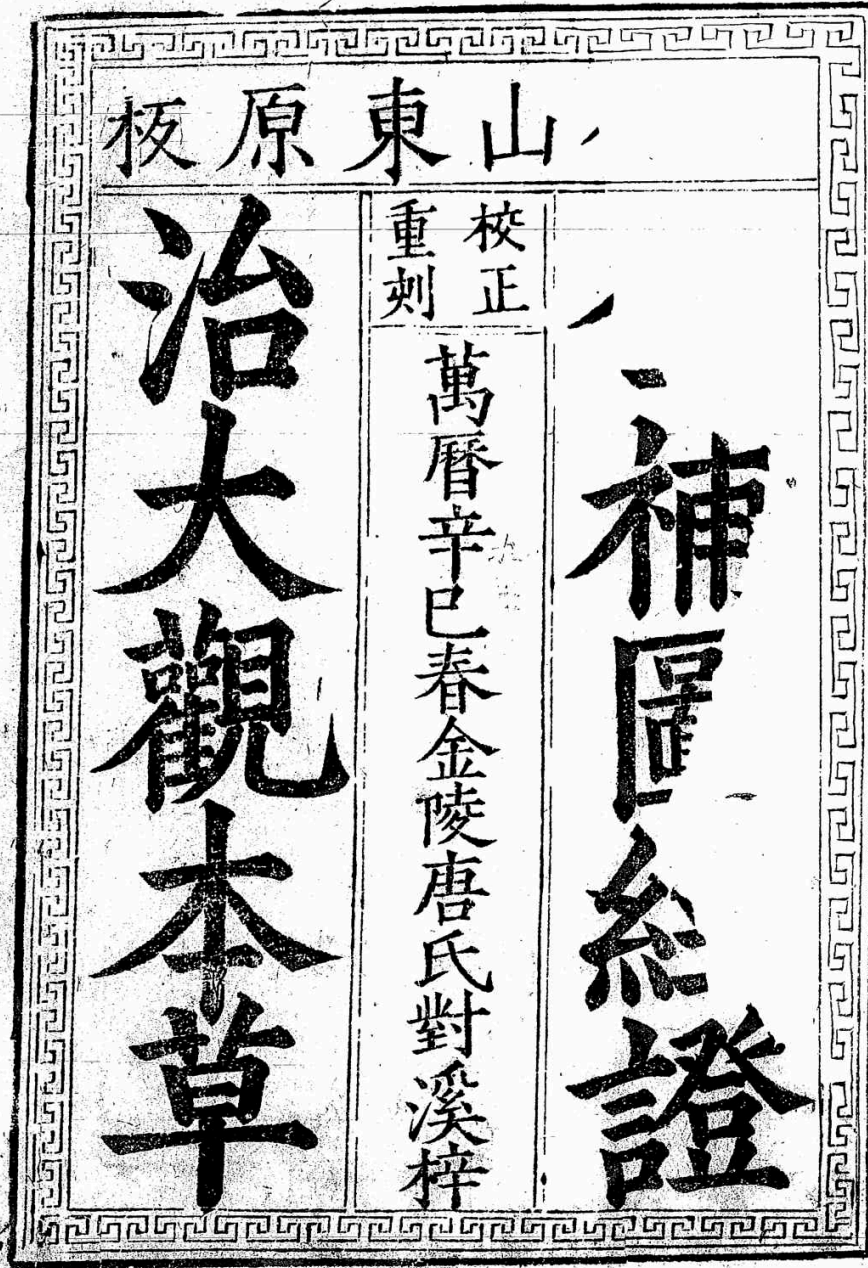 山東原板
補圖經證
校正
重刻
萬曆辛巳春金陵唐氏對溪梓
治大觀本草